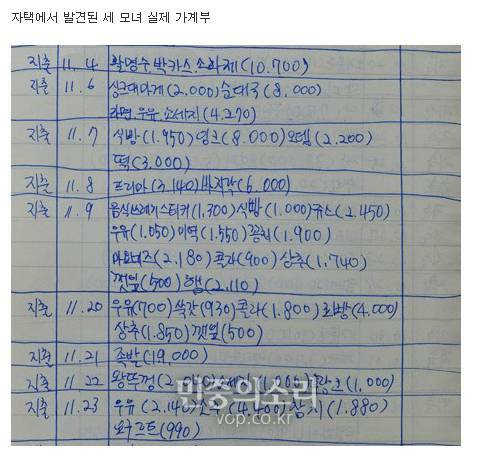 자택에서 발견된 세 모녀 실제 가계부
지출 11. 4 활명수, 박카스, 소화제(10.700)
지출 11. 6 싱크대마개(2.000)순대국(8,000)
라면, 우유, 소세지(4.270)
지출 11. 7 식빵(1.950)잉크(8.000)오뎅(2.200)
떡(3.000)
지출 11. 8 프리마(3.140) (6.000)
지출 11. 9 음식쓰레기스티커(1.300)식빵(1.000)쥬스(2.450)
우유(1.050)미역(1.550)꽁치(1.900)
마요네즈(2.180)콜라(900)상추(1.740)
깻잎(500)햄(2.110)
지출 11. 20 우유(700)쑥갓(930)콜라(1.800) (4.000)
상추(1.850)깻잎(500)
지출 11. 21 족발(19,000)
지출 11. 22 왕뚜껑 (1,000)
지출 11. 23 우유(2.140)소주(4.400)참치(1.880)
요구르트(990)
민중의소리
vop.co.kr